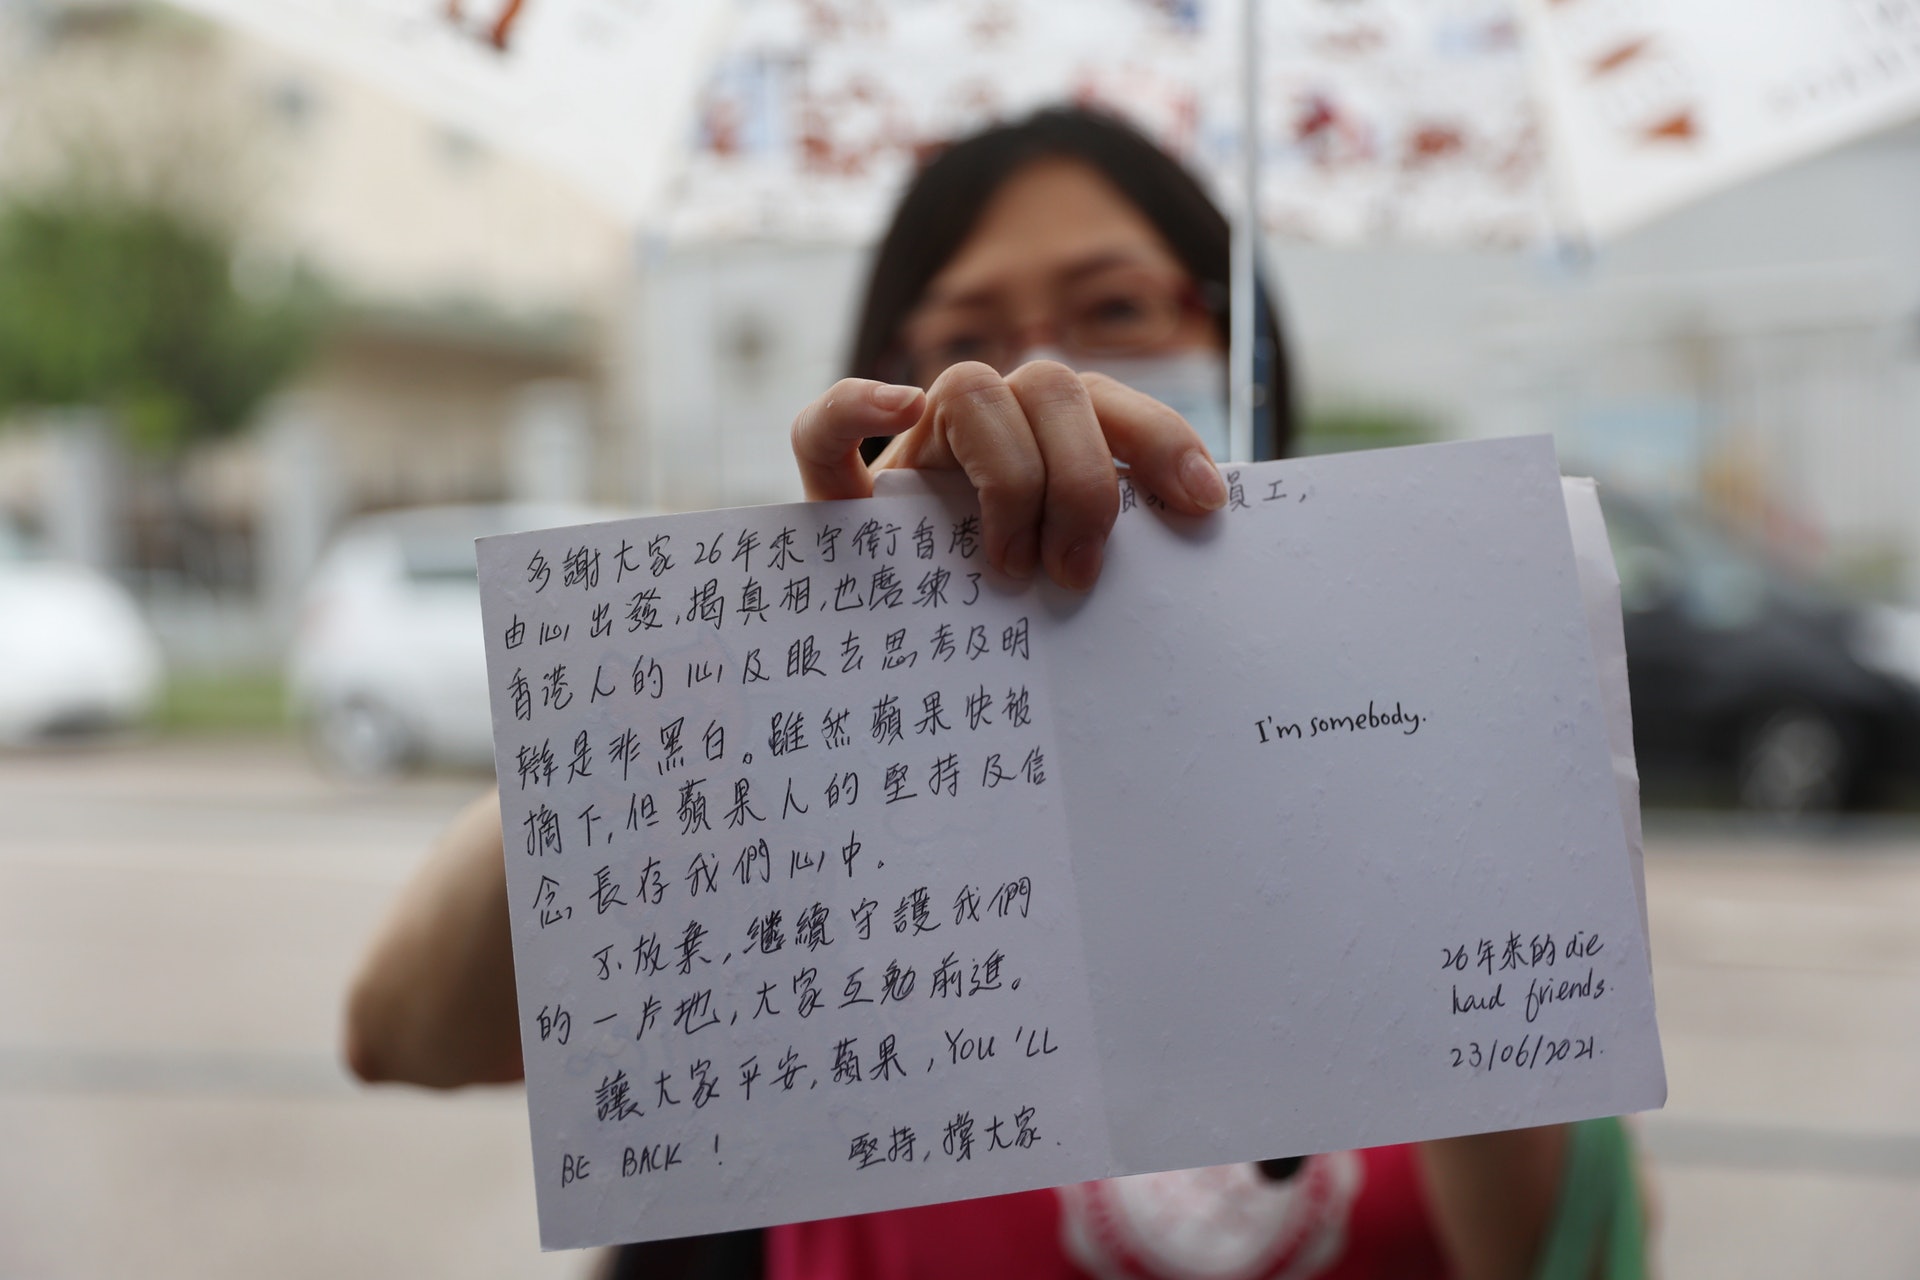 員工,
多謝大家26年來守衛香港
由心出發,揭真相,也磨練了
香港人的心及眼去思考及明
辯是非黑白。雖然蘋果快被
摘下,但蘋果人的堅持及信
念,長存我們心中.
不放棄,繼續守護我們
的一片地,大家互勉前進。
讓大家平安,蘋果,YOU'LL
BE BACK!
堅持,撐大家.
I'm somebody.
26年來的die
hard friends.
23/06/2021.